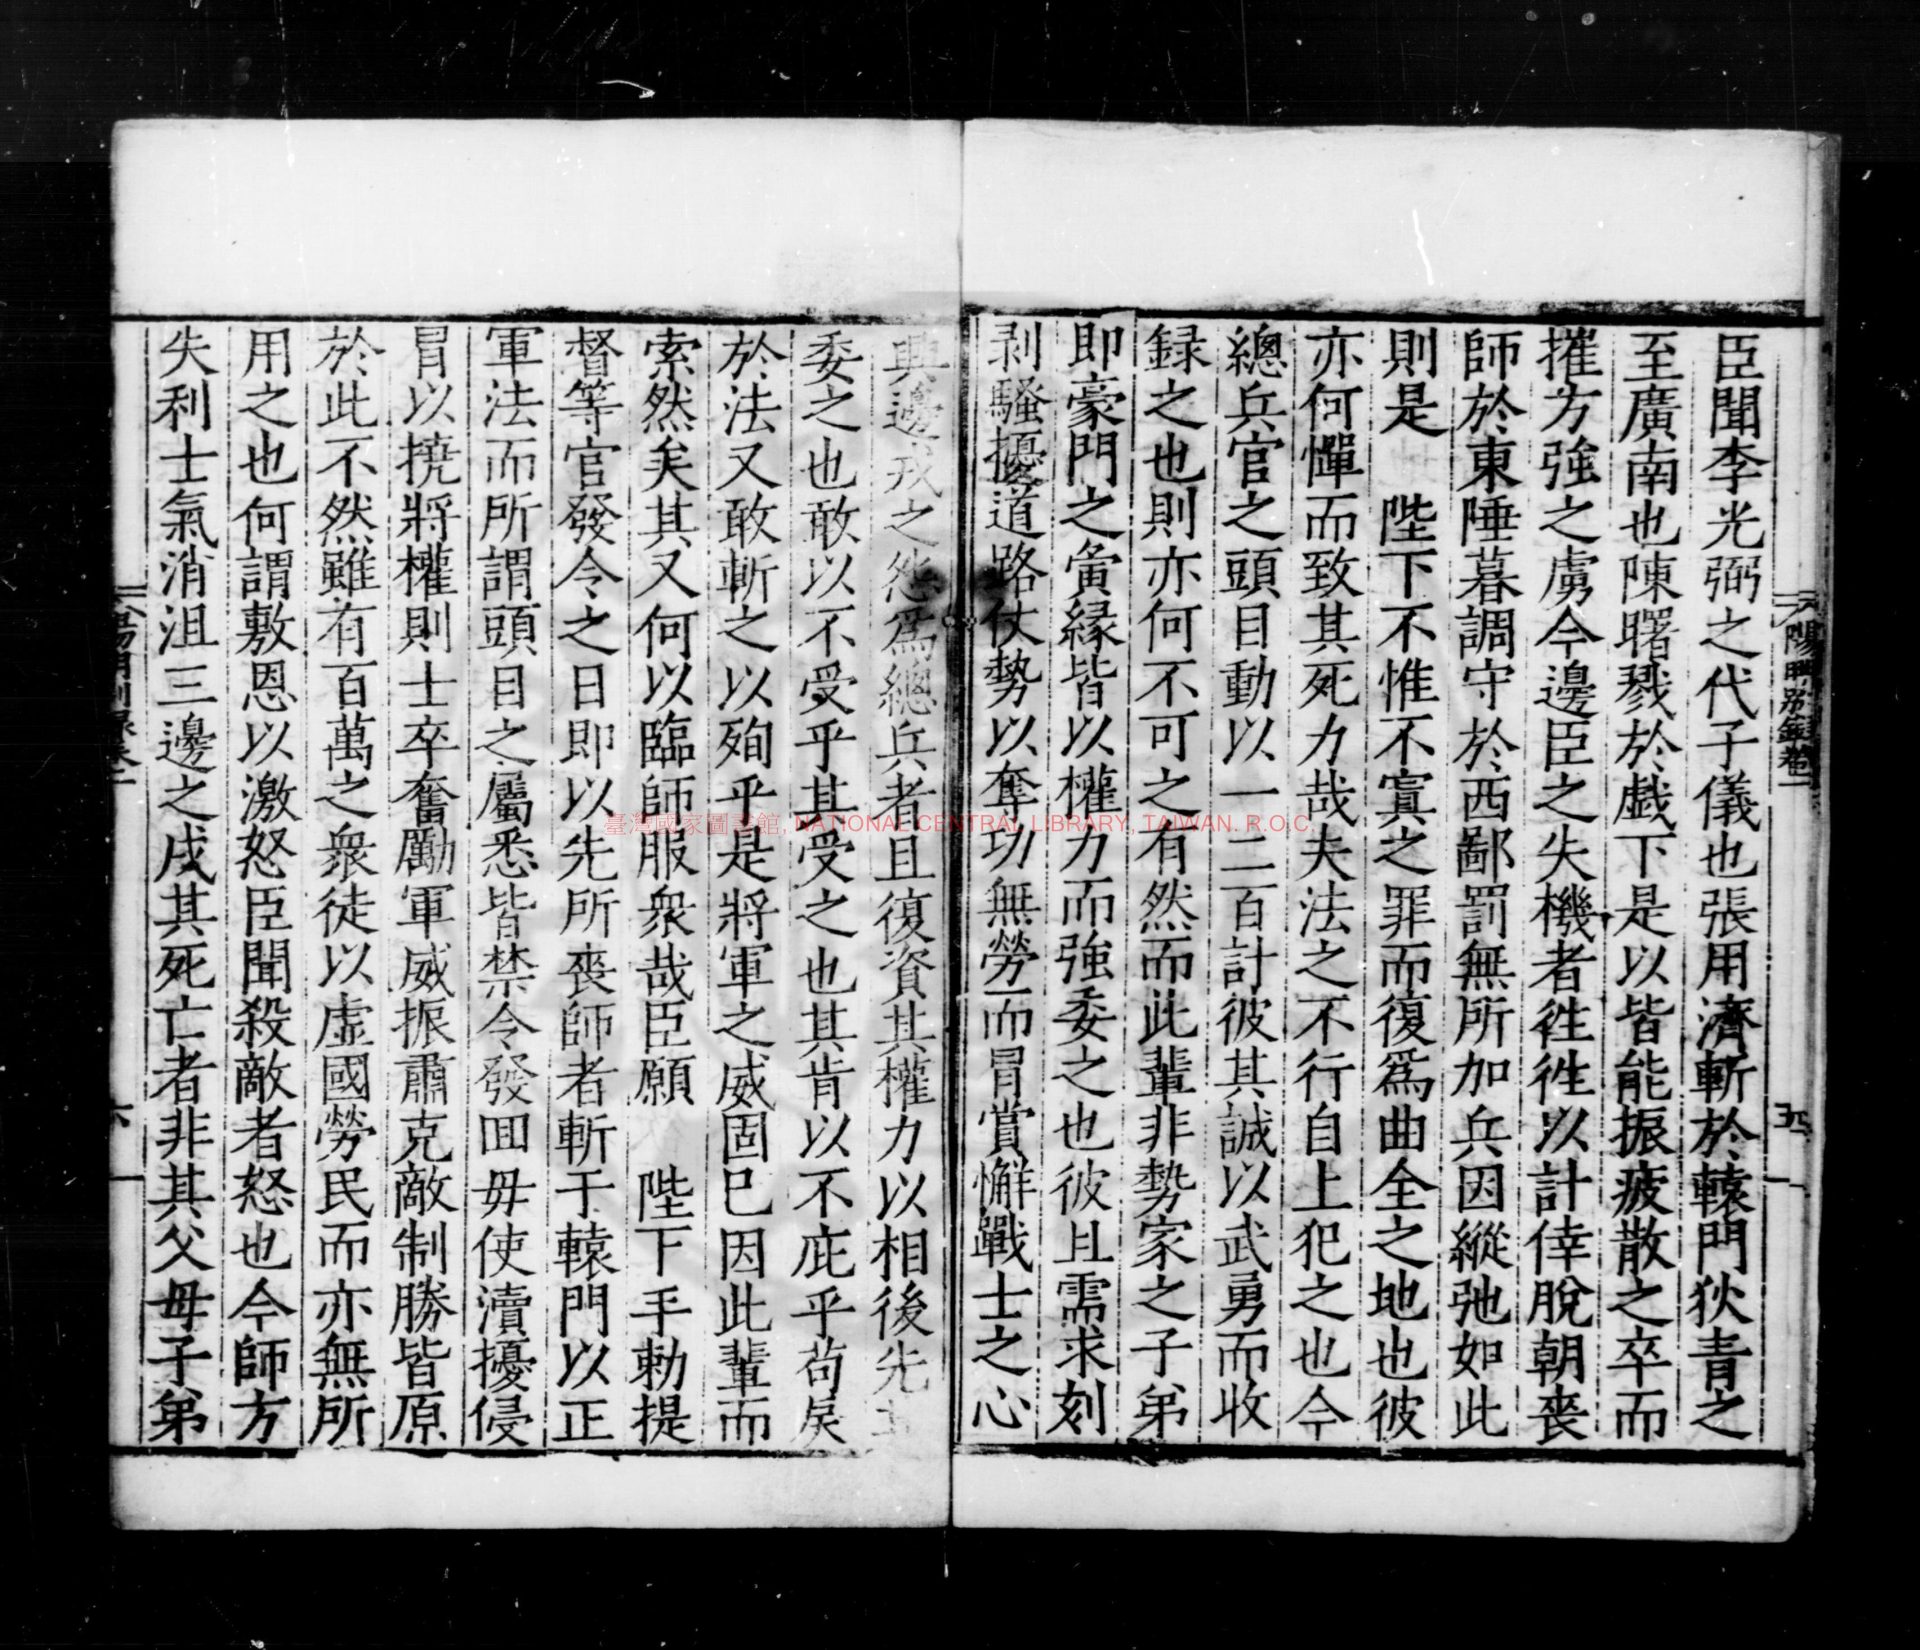 臣聞李光弼之代子儀也張用濟斬於轅門狄青之
至廣南也陳曙戮於戯下是以皆能振疲散之卒而
摧方強之虜今邊臣之失機者徃徃以計倖脫朝喪
師於東陲暮調守於西鄙罰無所加兵因縱弛如此
則是 陛下不惟不寘之罪而復爲曲全之地也彼
亦何憚而致其死力哉夫法之不行自上犯之也今
總兵官之頭目動以一二百計彼其誠以武勇而收
録之也則亦何不可之有然而此輩非勢家之子弟
即豪門之夤縁皆以權力而強委之也彼且需求刻
剥騷擾道路仗勢以奪功無勞而冒賞懈戰士之心
興邊戎之怨爲總兵者且復資其權力以相後先
委之也敢以不受乎其受之也其肯以不庇乎苟戾
於法又敢斬之以殉乎是將軍之威固已因此輩而
索然矣其又何以臨師服衆哉臣願 陛下手勅提
督等官發令之日即以先所喪師者斬于轅門以正
軍法而所謂頭目之屬悉皆禁令發囬毋使瀆擾侵
冒以撓將權則士卒奮勵軍威振肅克敵制勝皆原
於此不然雖有百萬之衆徒以虛國勞民而亦無所
用之也何謂敷恩以激怒臣聞殺敵者怒也今師方
失利士氣消沮三邊之戍其死亡者非其父母子弟
陽明别錄卷一
五
六
臺灣國家圖書館, NATIONAL CENTRAL LIBRARY, TAIWAN. R.O.C.